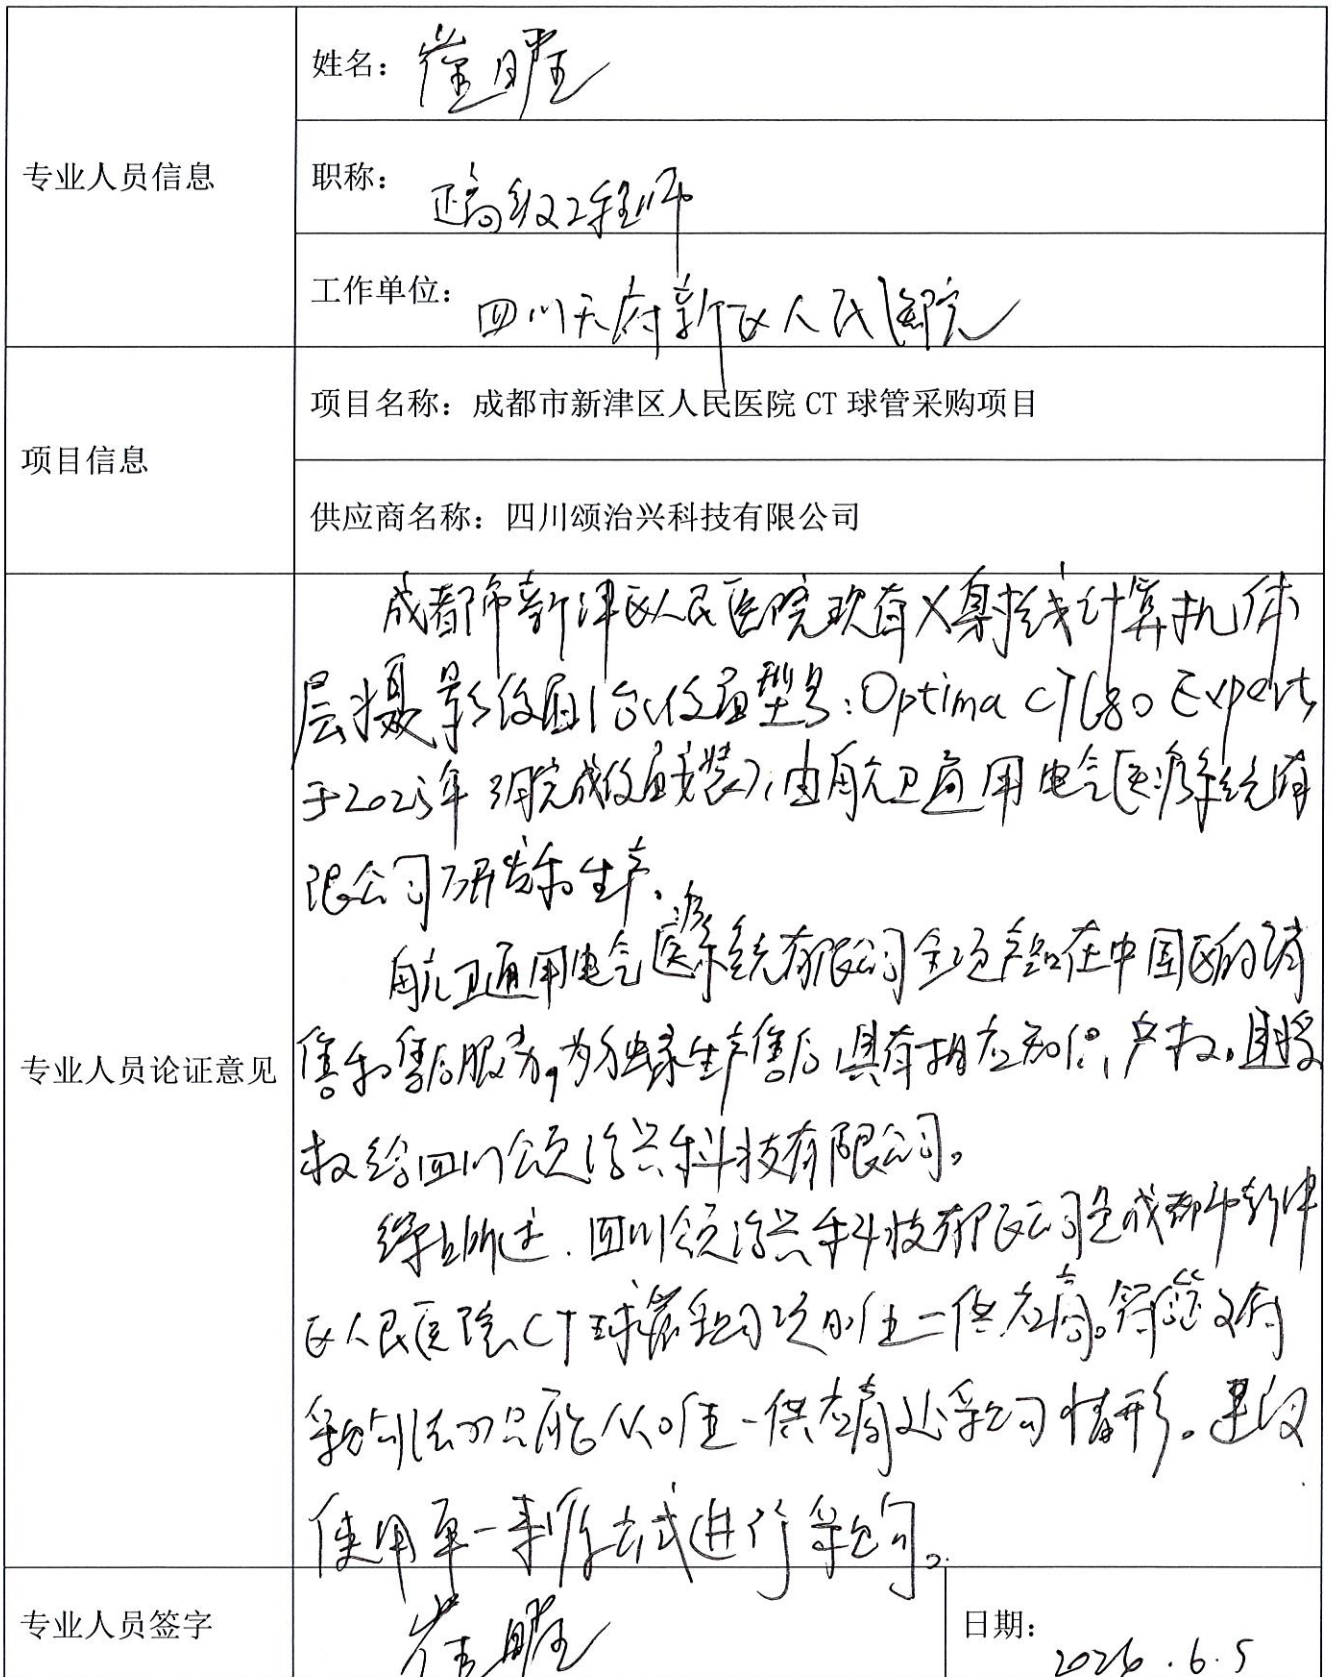 专业人员信息
姓名：崔
职称：正高级工程师
工作单位：四川天府新区人民医院
项目信息
项目名称：成都市新津区人民医院 CT 球管采购项目
供应商名称：四川颂治兴科技有限公司
专业人员论证意见
成都市新津区人民医院现有X射线计算机体
层摄影设备1台(设备型号:Optima CT680 Expert,
于2025年3月完成设备安装),由航卫通用电气医疗系统有
限公司研发和生产。
航卫通用电气医疗系统有限公司全线产品在中国区的销
售和售后服务,为独家生产售后,具有相应知识产权,且授
权给四川颂治兴科技有限公司。
综上所述,四川颂治兴科技有限公司是成都市新津
区人民医院CT球管采购项目唯一供应商。符合政府
采购法的只能从唯一供应商处采购情形。建议
使用单一来源方式进行采购。
专业人员签字
崔
日期：
2026.6.5